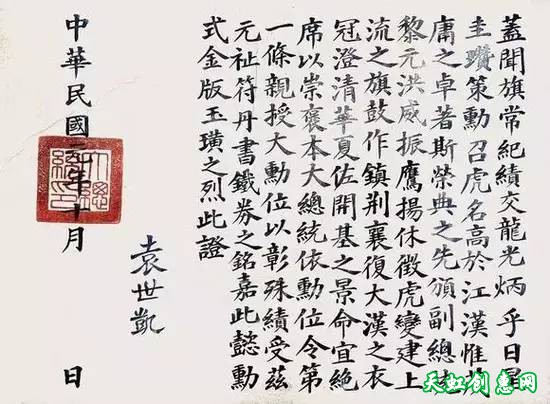 蓋聞旗常紀績交龍光炳乎日星
圭瓚策勳召虎名高於江漢惟茂
庸之卓著斯榮典之先頒副總統
黎元洪威振鷹揚休徵虎變建上
流之旗鼓作鎮荊襄復大漢之衣
冠澄清華夏佐開基之景命宜絕
席以崇褒本大總統依勳位令第
一條親授大勳位以彰殊績受茲
元祉符丹書鐵券之銘嘉此懿勳
式金版玉璜之烈此證
袁世凱
中華民國元年十月 日
大總統印
天虹创意网